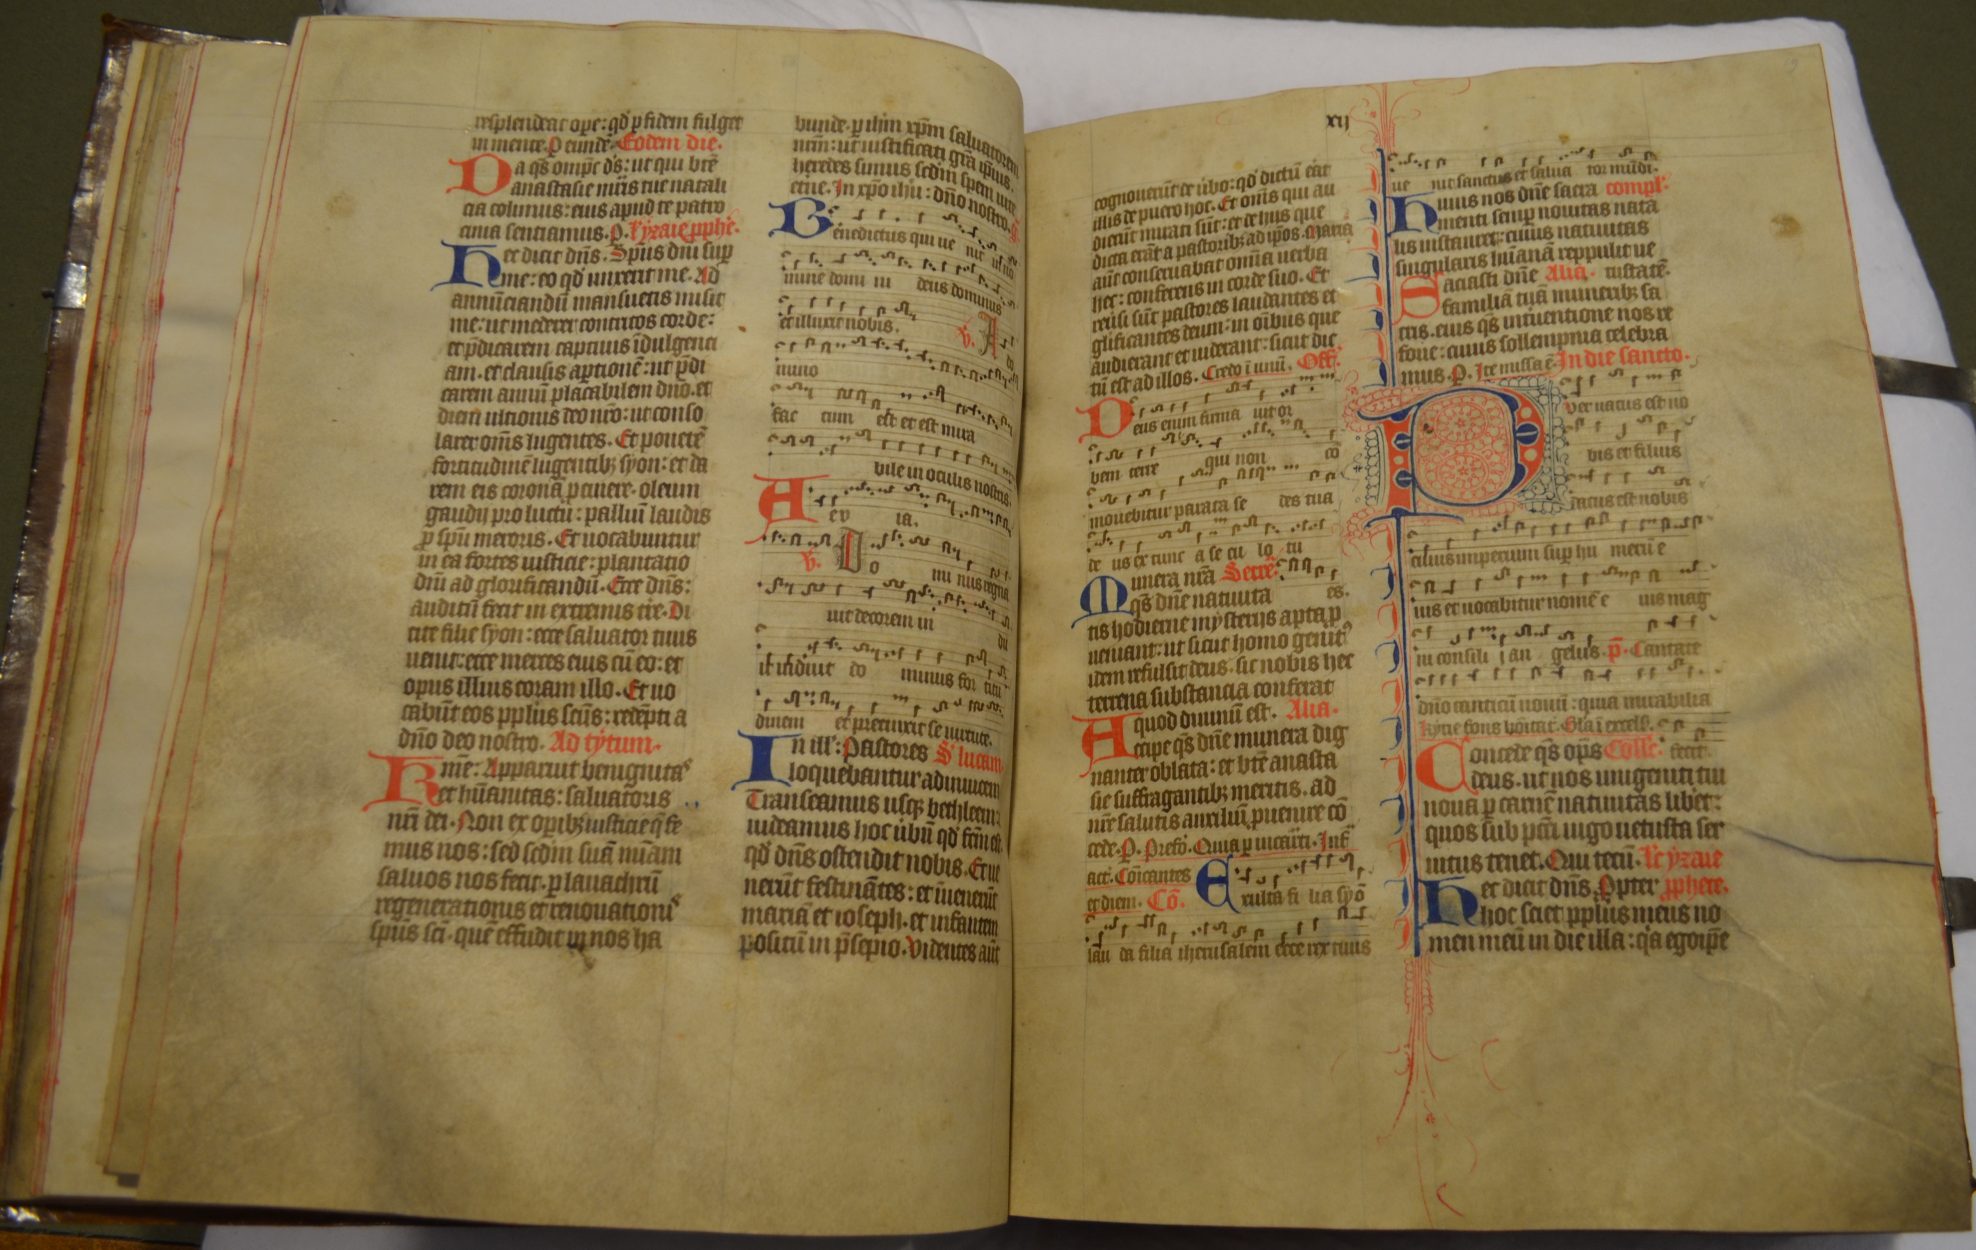 resplendeat ope: qd̄ p fidem fulget
in mente. P eundē. Eodem die.
Da qs̄ omp̄c ds̄: ut qui btē
anastasie mr̄is tue natali
cia colimus: eius apud te patro
cinia sentiamus. P. Ysaie pphē.
Hec dicit dn̄s. Spūs dn̄i sup
me: eo qd̄ unxerit me. Ad
annūciandū mansuetis misit
me: ut mederer contritos corde:
et p̄dicarem captiuis īdulgenci
am. et clausis aptionē: ut p̄di
carem annū placabilem dn̄o. et
diem ultionis deo nr̄o: ut conso
larer om̄s lugentes. Et ponerē
fortitudinē lugentibꝫ syon: et da
rem eis coronā p cinere. oleum
gaudij pro luctu: palliū laudis
p spū meroris. Et uocabuntur
in ea fortes iusticie: plantatio
dn̄i ad glorificandū. Ecce dn̄s:
auditū fecit in extremis tr̄e. Di
cite filie syon: ecce saluator tuus
uenit: ecce merces eius cū eo: et
opus illius coram illo. Et uo
cabūt eos ppl̄us scūs: redēpti a
dn̄o deo nostro. Ad tytum.
Kme: Apparuit benignitas
et hūanitas: saluatoris
nr̄i dei. Non ex opibꝫ iusticie q̄ fe
mus nos: sed scdm̄ suā mīam
saluos nos fecit. p lauachrū
regenerationis et renouationis
spūs sc̄i. quē effudit in nos ha
bunde. p ihm xpm saluatorem
nr̄m: ut iustificati grā ipius.
heredes simus scdm̄ spem uite
et̄ne. In xp̄o ihū: dn̄o nostro. G
Benedictus qui ue nit in no
mine domi ni deus dominus
et illuxit nobis. v. A
do
mino
fac tum est et est mira
bile in oculis nostris.
A
ev ia.
v. Do mi nus regna
uit decorem in du
it induit do minus for titu
dinem et precinxit se uirtute.
In ill': Pastores S' lucam
loquebantur adinuicem
Transeamus usqꝫ bethleem:
uideamus hoc ūbū qd̄ fc̄m est
qd̄ dn̄s ostendit nobis. Et ue
nerūt festināntes: et īuenerūt
mariā et ioseph. et infantem
positū in p̄sepio. Videntes aūt
xij
cognouerūt de ūbo: qd̄ dictū erat
illis de puero hoc. Et om̄s qui au
dierūt mirati sūt: et de hijs que
dicta erāt a pastoribꝫ ad ip̄os. Maria
aūt conseruabat omīa uerba
hec: conferens in corde suo. Et
reūsi sūt pastores laudantes et
glificantes deum: in oībus que
audierant et uiderant: sicut dic
tū est ad illos. Credo ī unū. Off.
Deus enim firma uit or
bem terre qui non cō
mouebitur parata se des tua
de us ex tunc a se cu lo tu
Munera nrā Secre. es.
qs̄ dn̄e natiuita
tis hodierne mysterijs apta p
ueniant: ut sicut homo genitꝰ
idem refulsit deus. sic nobis hec
terrena substancia conferat
quod diuinū est. Alia.
Accipe qs̄ dn̄e munera dig
nanter oblata: et btē anasta
sie suffragantibꝫ meritis. ad
nr̄e salutis auxiliū puenire cō
cede. P. Prefō. Quia p incar̄ti. Inf
act. Cōicantes Exulta fi lia syō
et diem. Cō.
lau da filia iherusalem ecce rex tuus
ue nit sanctus et salua tor mūdi.
Huius nos dn̄e sacra compl'
menti semp nouitas nata
lis instauret: cuius natiuitas
singularis hūanā reppulit ue
Saciasti dn̄e Alia. tustatē.
familiā tuā muneribꝫ sa
cris. eius qs̄ intuentione nos re
foue: cuius sollempnia celebra
mus. P. Ite missa ē. In die sancto.
Puer natus est no
bis et filius
datus est nobis
cuius imperium sup hu merū e
ius et uocabitur nomē e ius mag
ni consili j an gelus. p. Cantate
dn̄o canticū nouū: quia mirabilia
kyrie fons bōitat. Gla ī excels. fecit.
Concede qs̄ op̄s Colle.
deus. ut nos unigeniti tui
noua p carnē natiuitas liber:
quos sub pcti iugo uetusta ser
uitus tenet. Qui tecū. Lc ysaie
Hec dicit dn̄s. Ppter pphete.
hoc sciet ppl̄us meus no
men meū in die illa: q̄a ego ip̄e